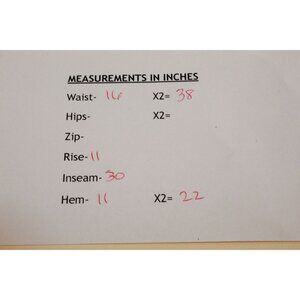 MEASUREMENTS IN INCHES
Waist- 16 X2= 38
Hips- X2=
Zip-
Rise- 11
Inseam- 30
Hem- 11 X2= 22